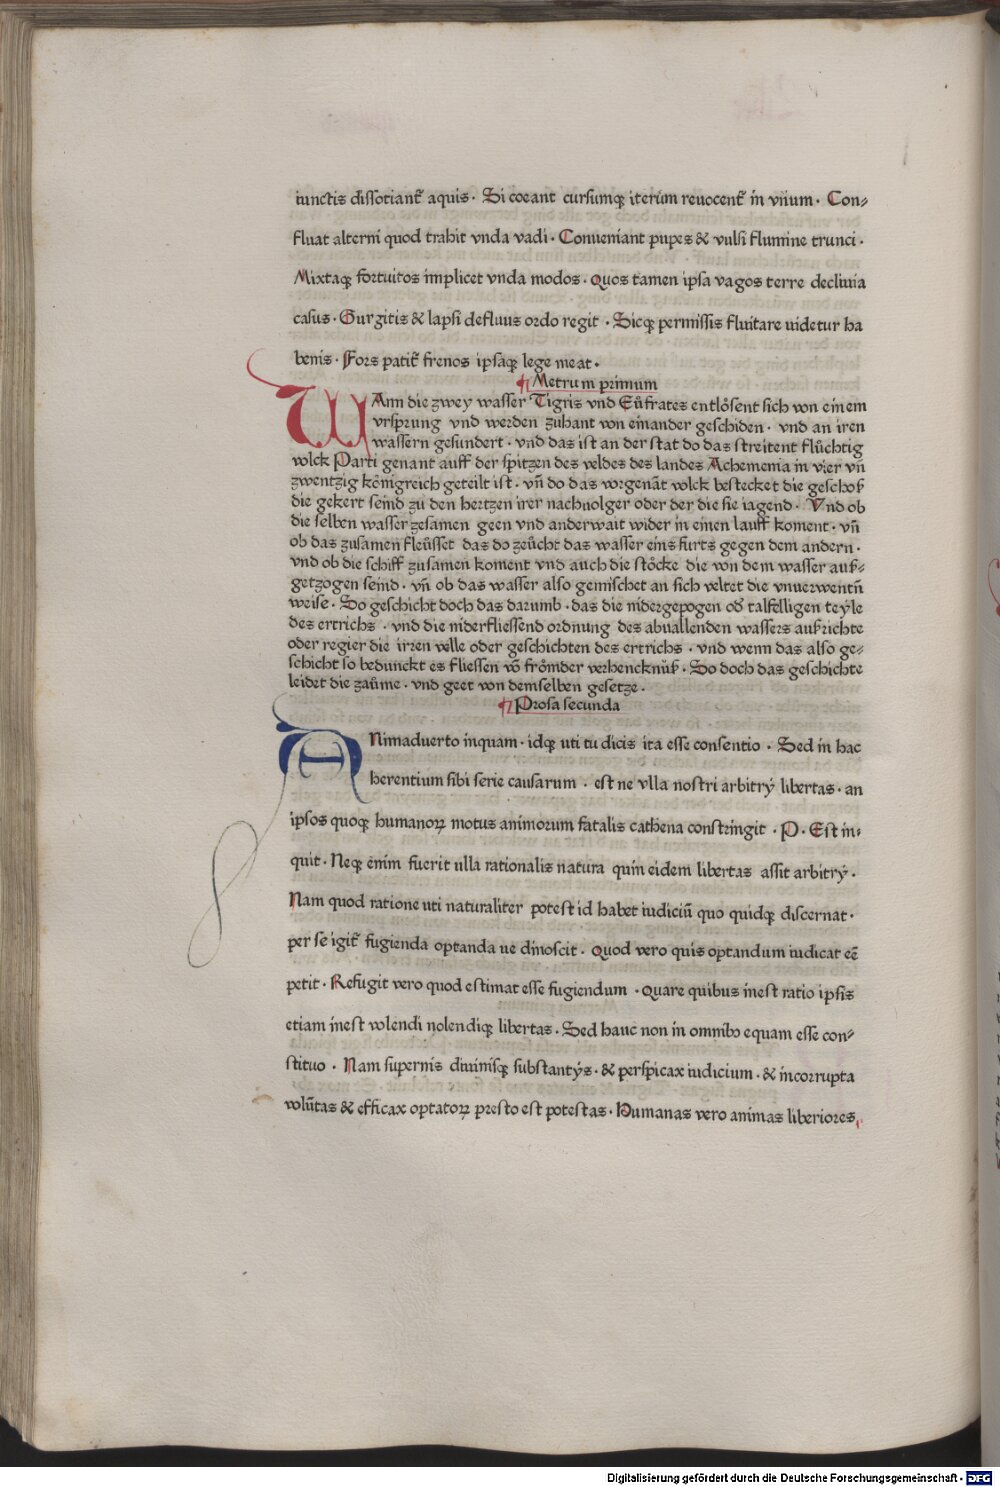 iunctis dissotiant̃ aquis. Si coeant cursumqꝫ iterum reuocent̃ in vnum. Con⸗
fluat alterni quod trahit vnda vadi. Conueniant pupes & vulsi flumine trunci.
Mixtaqꝫ fortuitos implicet vnda modos. Quos tamen ipsa vagos terre decliuia
casus. Gurgitis & lapsi defluus ordo regit. Sicqꝫ permissis fluitare uidetur ha
benis. Fors patit̃ frenos ipsaqꝫ lege meat.
¶ Metrum primum
WAnn die zwey wasser Tigris vnd Eůfrates entlősent sich von einem
vrsprung vnd werden zuhant von einander geschiden. vnd an iren
wassern gesundert. vnd das ist an der stat do das streitent flůchtig
volck Parti genant auff der spitzen des veldes des landes Achemenia in vier vñ
zwentzig kőnigreich geteilt ist. vñ do das vorgenãt volck bestecket die geschoß
die gekert seind zu den hertzen irer nachuolger oder der die sie iagend. Vnd ob
die selben wasser zesamen geen vnd anderwait wider in einen lauff koment. vñ
ob das zusamen fleůsset das do zeůcht das wasser eins furts gegen dem andern.
vnd ob die schiff zusamen koment vnd auch die stőcke die von dem wasser auß⸗
getzogen seind. vñ ob das wasser also gemischet an sich veltet die vnuerwentñ
weise. So geschicht doch das darumb. das die nidergepogen od̓ talfelligen teyle
des ertrichs. vnd die niderfliessend ordnung des abuallenden wassers aufrichte
oder regier die irren velle oder geschichten des ertrichs. vnd wenn das also ge⸗
schicht so bedunckt es fliessen võ frőmder verhencknůß. So doch das geschichte
leidet die zaůme. vnd geet von demselben gesetze.
¶ Prosa secunda
ANimaduerto inquam. idqꝫ uti tu dicis ita esse consentio. Sed in hac
herentium sibi serie causarum. est ne vlla nostri arbitrÿ libertas. an
ipsos quoqꝫ humanoꝝ motus animorum fatalis cathena constringit. P. Est in⸗
quit. Neqꝫ enim fuerit ulla rationalis natura quin eidem libertas assit arbitrÿ.
Nam quod ratione uti naturaliter potest id habet iudiciũ quo quidqꝫ discernat.
per se igit̃ fugienda optanda ue dinoscit. Quod vero quis optandum iudicat eẽ
petit. Refugit vero quod estimat esse fugiendum. Quare quibus inest ratio ipsis
etiam inest volendi nolendiqꝫ libertas. Sed hanc non in omnibꝫ equam esse con⸗
stituo. Nam supernis diuinisqꝫ substantÿs. & perspicax iudicium. & incorrupta
volũtas & efficax optatoꝝ presto est potestas. Humanas vero animas liberiores
Digitalisierung gefördert durch die Deutsche Forschungsgemeinschaft - DFG